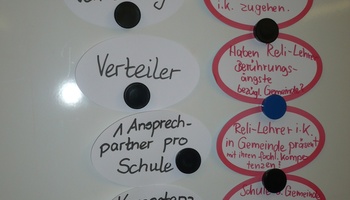 i.k. zugehen.
Verteiler
Haben Reli-Lehrer
Berührungs-
ängste
bezügl. Gemeinde?
1 Ansprech-
partner pro
Schule
Reli-Lehrer i.K.
in Gemeinde präsent
mit ihren fachl. Kompe-
tenzen!
Schule u. Gemeinde